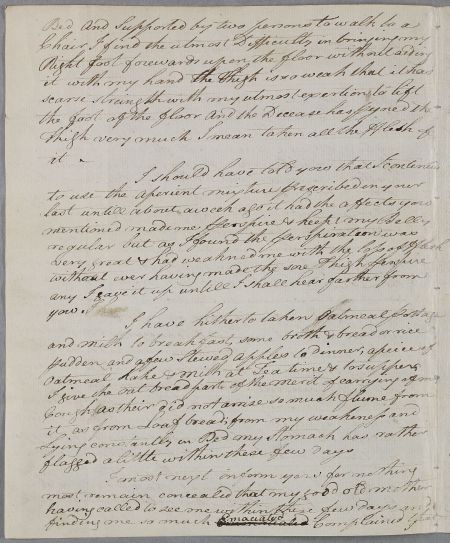 Bed And Supported by two persons to walk to a
Chair, I find the utmost Difficulty in bringing my
Right foot forewards upon the floor without aiding
it with my hand the thigh is so weak that it has
scarse strength with my utmost exertion to lift
the foot of the floor And the Decease has the
thigh very much I mean taken all the flesh of
it.
I should have told you that I continued
to use the aperient mixture prescribed in your
last untill about a week ago it had the affects you
mentioned made me perspire & kept my Belly
regular but as I found the perspiration was
very great & had weakned me with the loss of flesh
without ever having made the sore thigh perspire
any I gave it up untill I shall hear farther from
you.
I have hitherto taken Oatmeal pottage
and milk to breakfast, some broth & bread or rice
pudden and a few stewed apples to dinner, a piece of
Oatmeal Cake & milk at Tea time & to supper
I give the oat bread part of the merit of carrying off my
Cough as their did not arise so much flume from
it, as from Loaf bread, from my weakness and
lying constantly in Bed my Stomach has rather
flagged a little within these few days
I most next inform you for nothing
most remain concealed that my good old mother
having called to see me within these few days and
finding me so much Emaciated Complained that